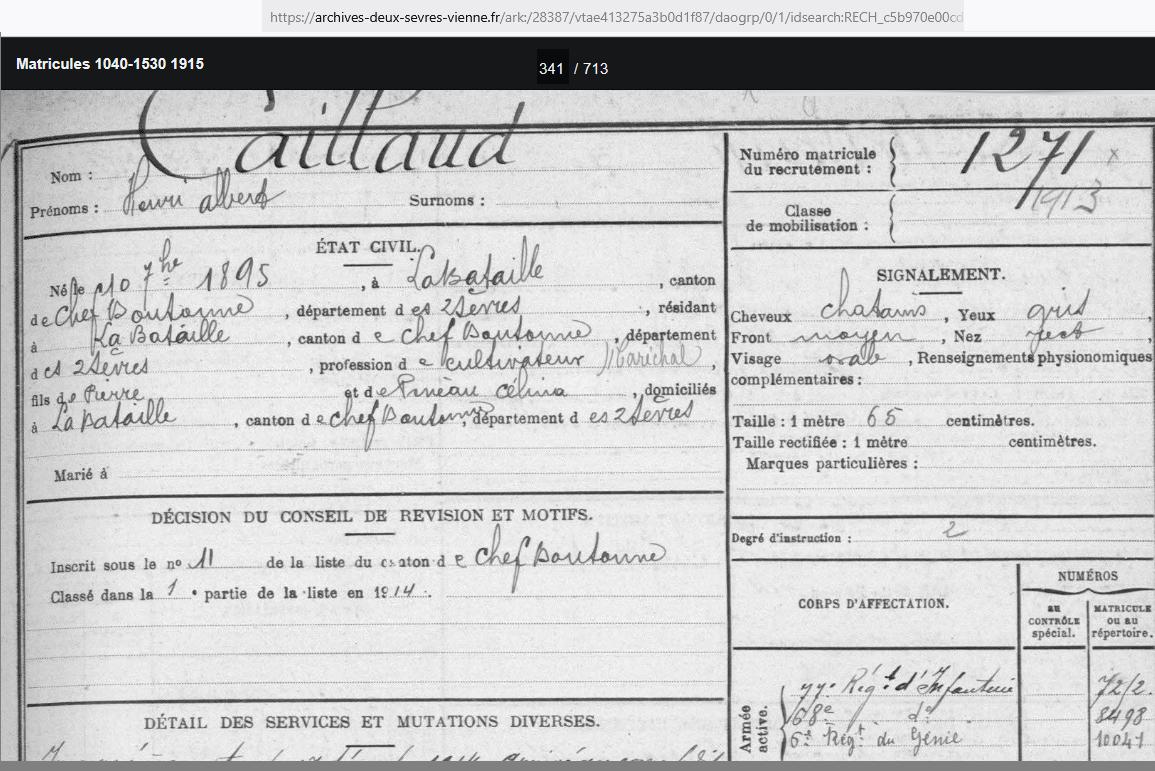 https://archives-deux-sevres-vienne.fr/ark:/28387/vtae413275a3b0d1f87/daogrp/0/1/idsearch:RECH_c5b970e00cd
Matricules 1040-1530 1915
341 / 713
Nom : Caillaud
Prénoms : Henri albert Surnoms :
Numéro matricule du recrutement : 1271
Classe de mobilisation : 1913
ÉTAT CIVIL.
Né le 10 7bre 1895, à La Bataille, canton
de Chef Boutonne, département des 2 Sèvres, résidant
à La Bataille, canton de Chef Boutonne, département
des 2 Sèvres, profession de cultivateur Maréchal,
fils de Pierre et de Pineau Célina, domiciliés
à La Bataille, canton de chef Boutonne, département des 2 Sèvres
Marié à
SIGNALEMENT.
Cheveux chatains, Yeux gris,
Front moyen, Nez rect
Visage ovale, Renseignements physionomiques
complémentaires :
Taille : 1 mètre 65 centimètres.
Taille rectifiée : 1 mètre centimètres.
Marques particulières :
DÉCISION DU CONSEIL DE REVISION ET MOTIFS.
Inscrit sous le no 11 de la liste du canton de Chef Boutonne
Classé dans la 1e partie de la liste en 1914.
Degré d'instruction : 2
CORPS D'AFFECTATION.
NUMÉROS
AU CONTRÔLE spécial.
MATRICULE ou au répertoire.
Armée active.
77e Régt d'Infanterie 72/2.
68e do 8498
6e Régt du Génie 10041
DÉTAIL DES SERVICES ET MUTATIONS DIVERSES.